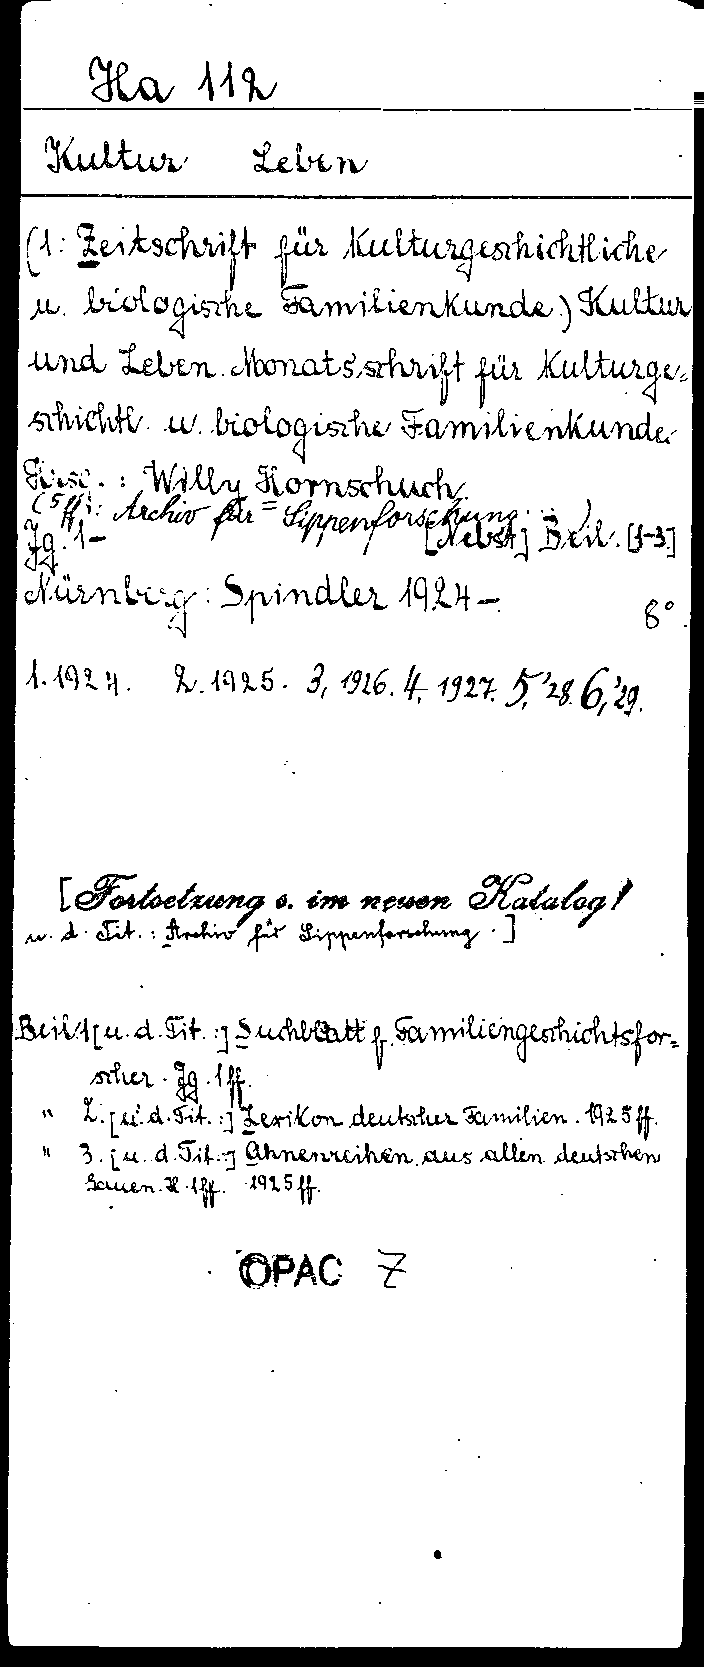 Ha 112
Kultur Leben
(1: Zeitschrift für kulturgeschichtliche
u. biologische Familienkunde) Kultur
und Leben. Monatsschrift für kulturge-
schichtl. u. biologische Familienkunde.
Hrsg.: Willy Hornschuch.
(5ff: Archiv für Sippenforschung.)
Jg. 1- [Nebst] Beil. [1-3.]
Nürnberg: Spindler 1924 - 8°.
1. 1924. 2. 1925. 3, 1926. 4, 1927. 5, '28. 6, '29.
[Fortsetzung s. im neuen Katalog!
u. d. Tit.: Archiv für Sippenforschung.]
Beil. 1 [u. d. Tit.:] Suchblatt f. Familiengeschichtsfor-
scher. Jg. 1ff.
" 2. [u. d. Tit.:] Lexikon deutscher Familien. 1925ff.
" 3. [u. d. Tit.:] Ahnenreihen aus allen deutschen
Gauen. H. 1ff. 1925ff.
OPAC Z